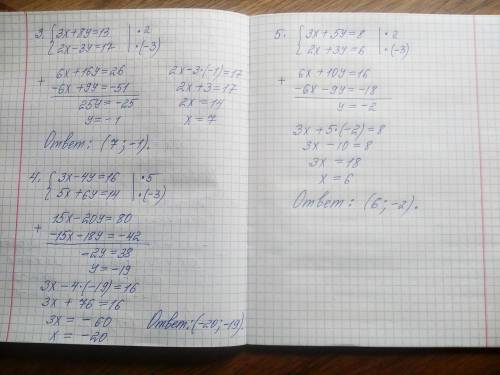 3. {3x+8y=13 | ·2
{2x-3y=17 | ·(-3)
+ 6x+16y=26
-6x+9y=-51
25y=-25
y=-1
2x-3·(-1)=17
2x+3=17
2x=14
x=7
Ответ: (7;-1).
4. {3x-4y=16 | ·5
{5x+6y=14 | ·(-3)
+ 15x-20y=80
-15x-18y=-42
-2y=38
y=-19
3x-4·(-19)=16
3x+76=16
3x=-60
x=-20
Ответ: (-20;-19).
5. {3x+5y=8 | ·2
{2x+3y=6 | ·(-3)
+ 6x+10y=16
-6x-9y=-18
y=-2
3x+5·(-2)=8
3x-10=8
3x=18
x=6
Ответ: (6;-2).